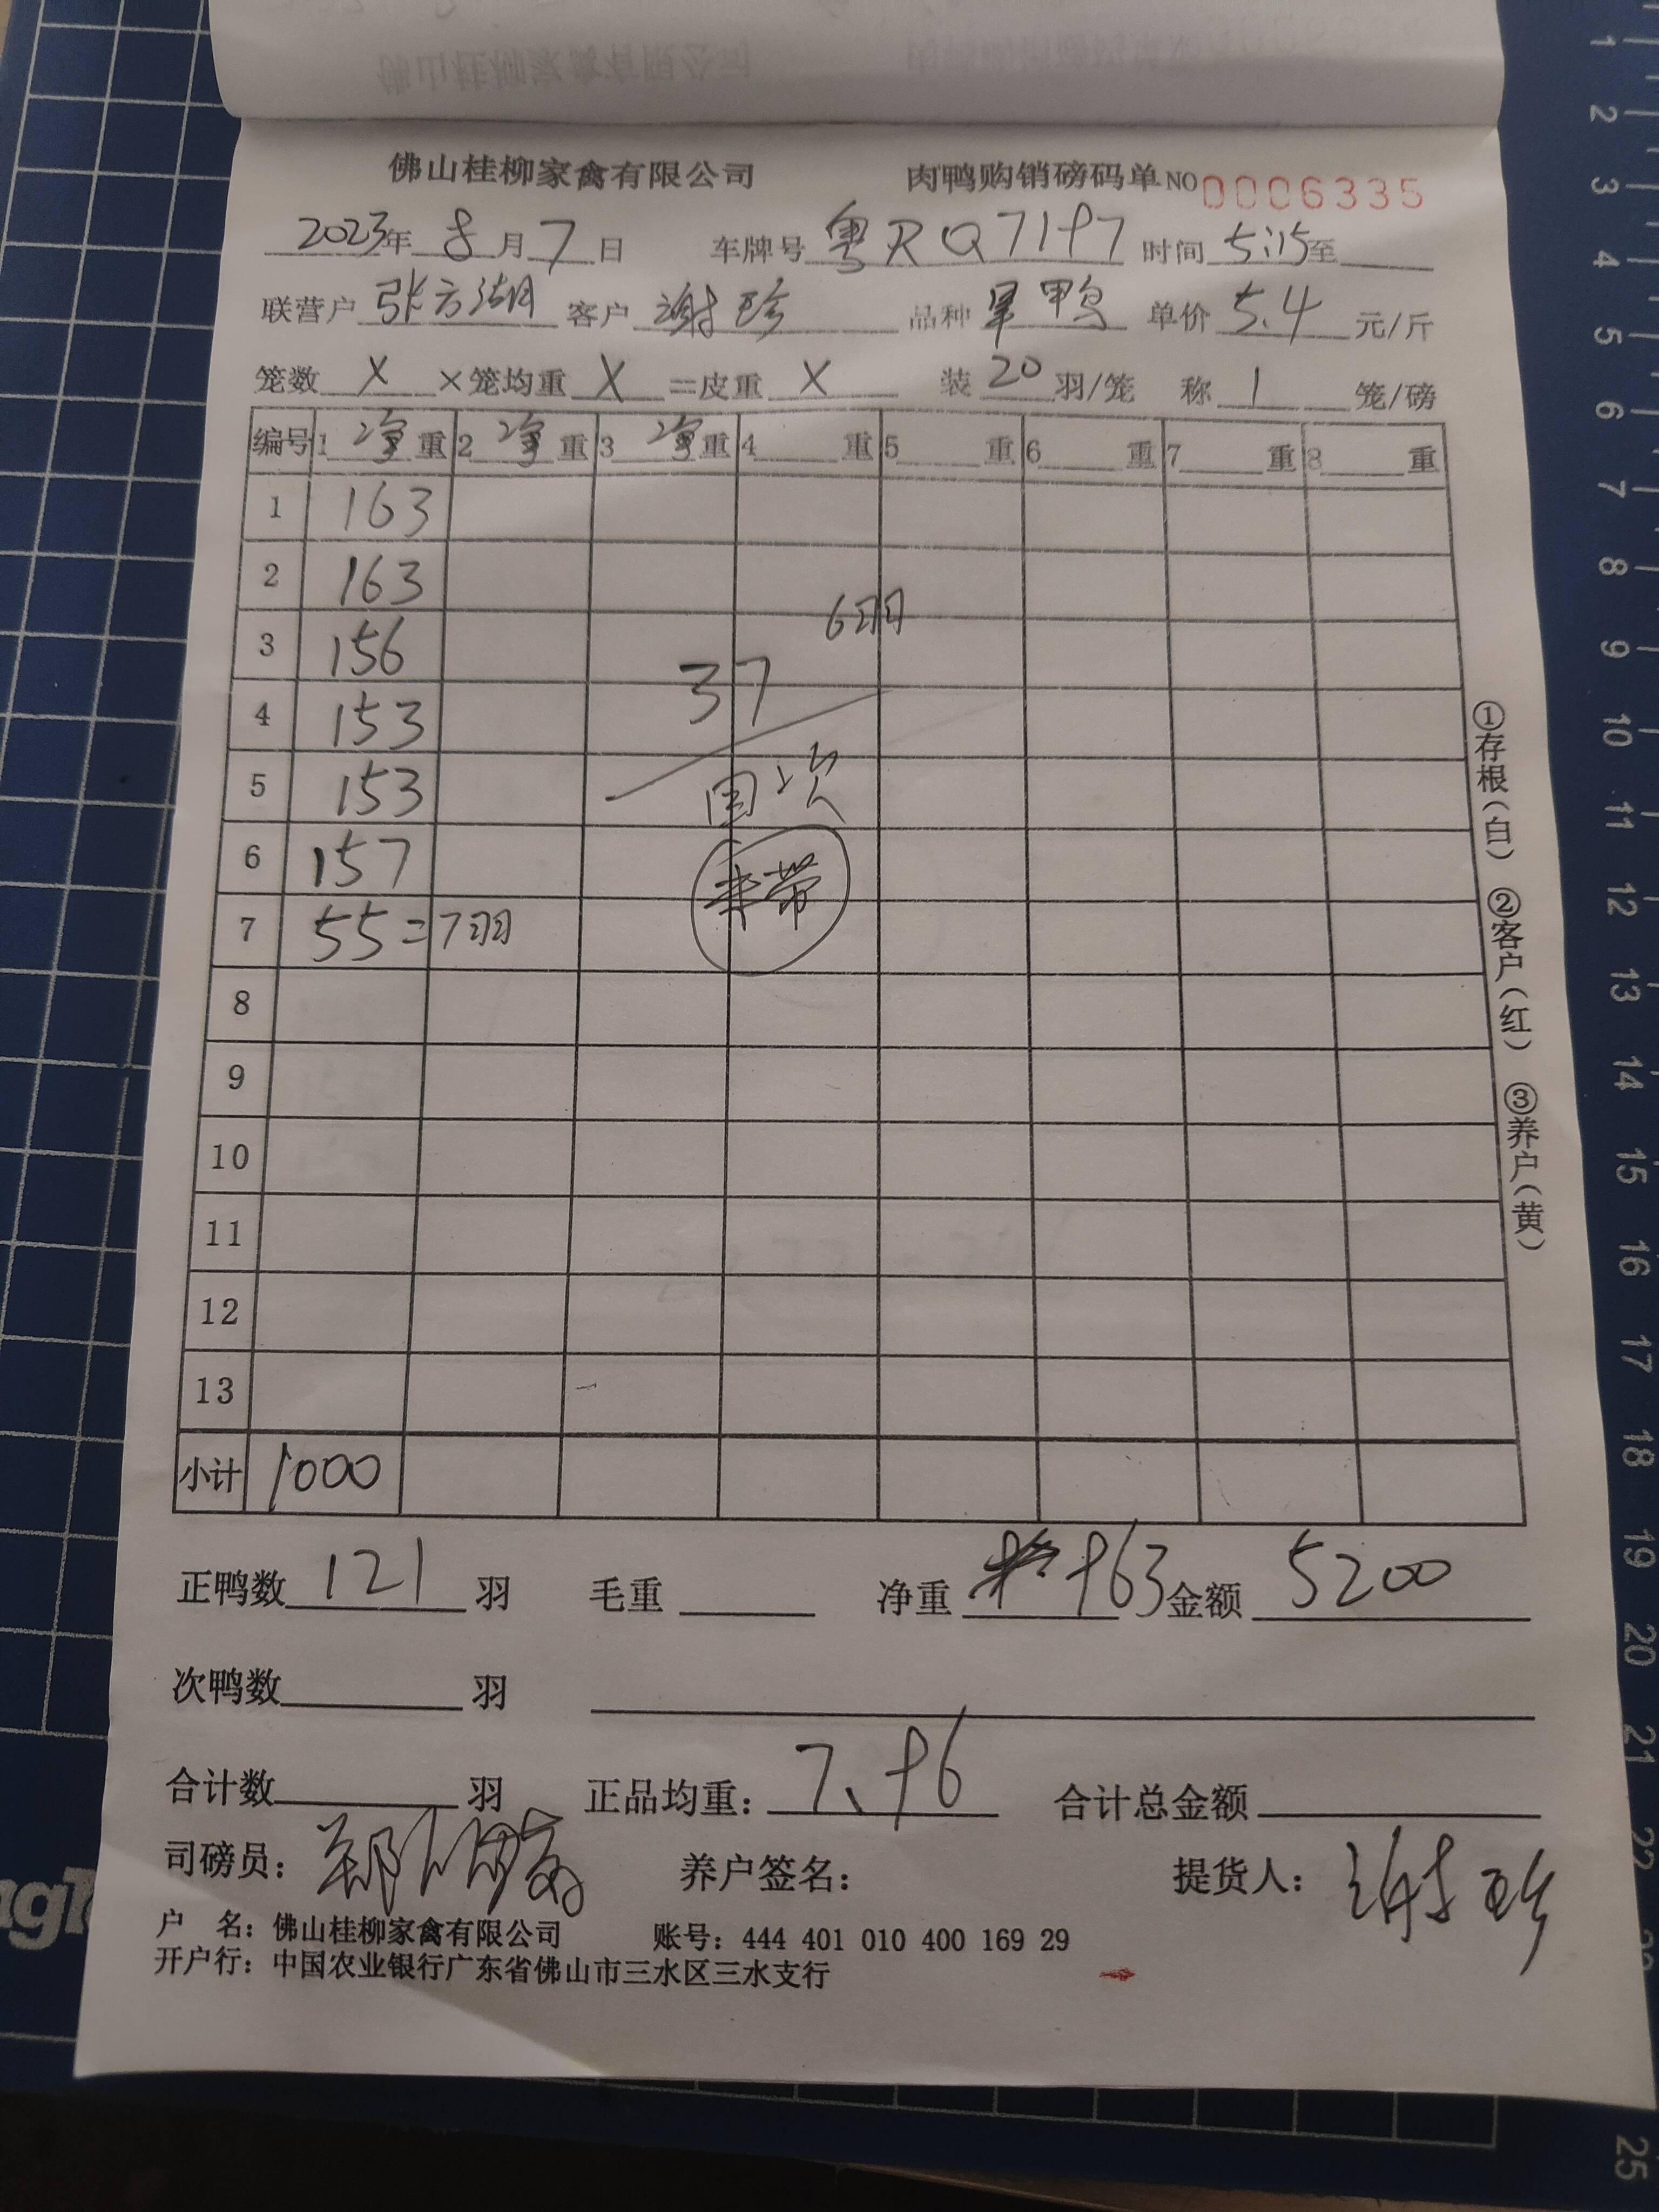 佛山桂柳家禽有限公司 肉鸭购销磅码单 NO 0006335
2023年 8月 7日 车牌号 粤RQ7197 时间 5:15至
联营户 张方湖 客户 谢珍 品种 旱鸭 单价 5.4 元/斤
笼数 X ×笼均重 X =皮重 X 装 20 羽/笼 称 1 笼/磅
编号 1 净重 2 净重 3 净重 4 重 5 重 6 重 7 重 8 重
1 163
2 163
6羽
3 156
37
4 153
5 153
回次
6 157
未带
7 55=7羽
8
9
10
11
12
13
小计 1000
①存根(白) ②客户(红) ③养户(黄)
正鸭数 121 羽 毛重 净重 963 金额 5200
次鸭数 羽
合计数 羽 正品均重: 7.96 合计总金额
司磅员: 养户签名: 提货人: 谢珍
户 名: 佛山桂柳家禽有限公司 账号: 444 401 010 400 169 29
开户行: 中国农业银行广东省佛山市三水区三水支行
1
2
3
4
5
6
7
8
9
10
11
12
13
14
15
16
17
18
19
20
21
22
25